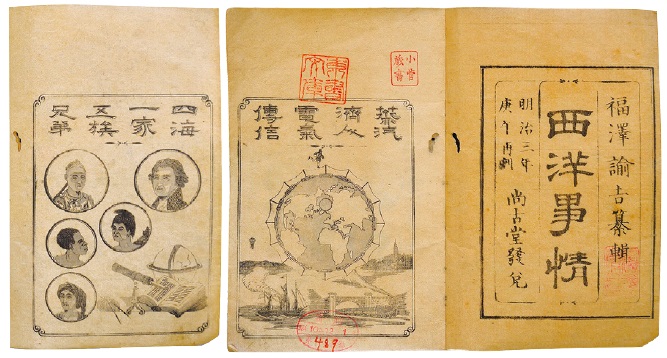 福澤諭吉纂輯
西洋事情
明治三年
庚午再刻
尚古堂發兌
蒸汽
濟人
電氣
傳信
四海
一家
五族
兄弟